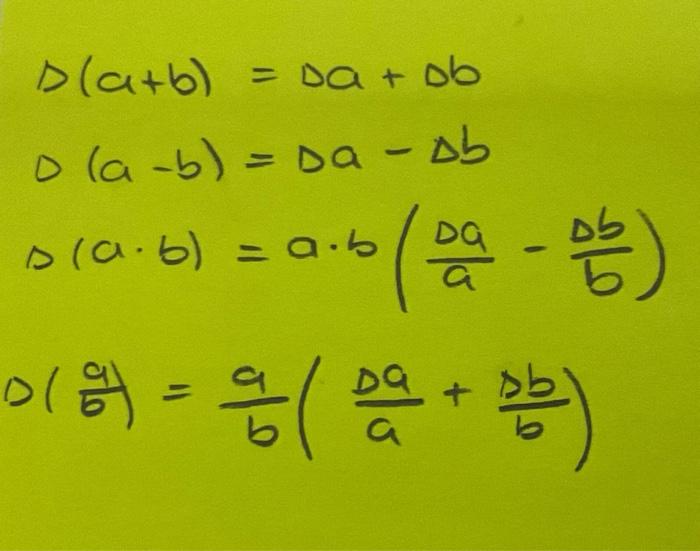 Δ(a+b) = Δa + Δb
Δ(a-b) = Δa - Δb
Δ(a·b) = a·b (Δa/a - Δb/b)
Δ(a/b) = a/b (Δa/a + Δb/b)